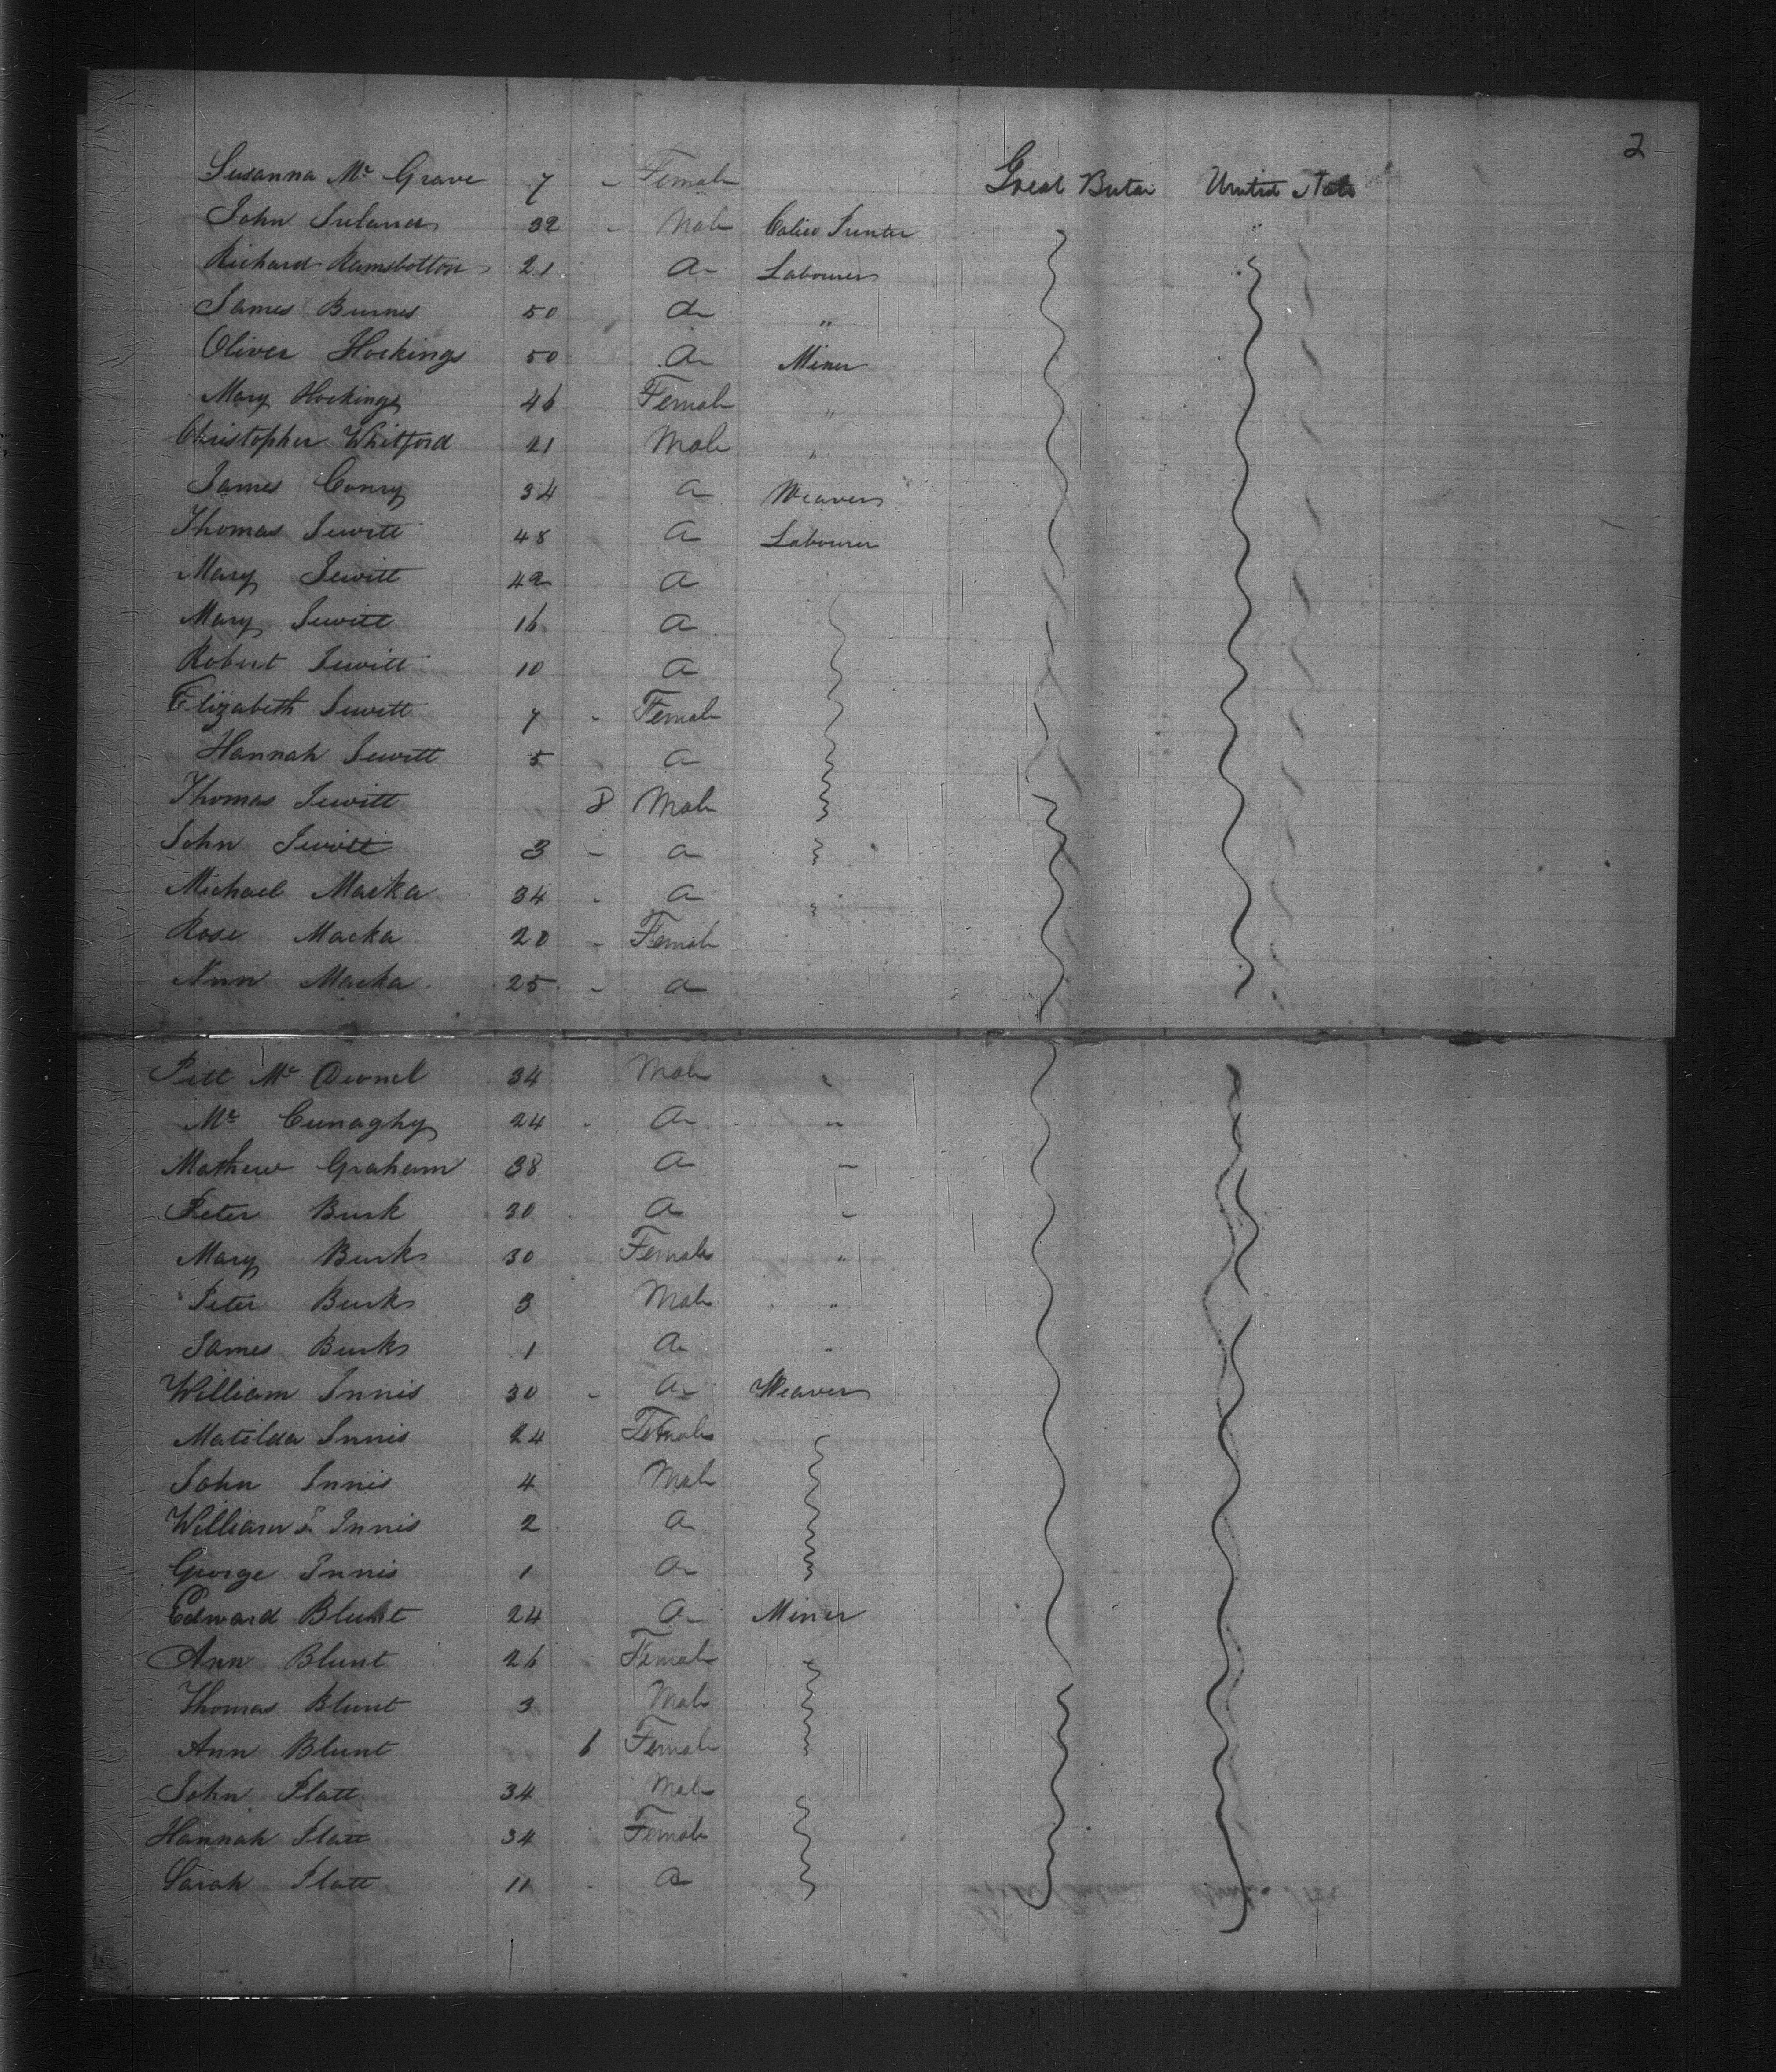 2
Susanna Mc Grave 7 - Female Great Britai United State
John Ireland 32 - Male Calico Printer "
Richard Ramsbottom 21 Do Labourer
James Burnes 50 Do "
Oliver Hockings 50 Do Miner
Mary Hockings 46 Female "
Christopher Whitford 21 Male "
James Conry 34 Do Weaver
Thomas Jewitt 48 Do Labourer
Mary Jewitt 42 Do
Mary Jewitt 16 Do
Robert Jewitt 10 Do
Elizabeth Jewitt 7 - Female
Hannah Jewitt 5 Do
Thomas Jewitt 8 Male
John Jewitt 3 - Do
Michael Macka 34 - Do "
Rose Macka 20 - Female
Ann Macka 25 - Do
Mc 34 Male "
Mc Cunaghy 24 - Do "
Mathew Graham 38 Do "
Peter Burk 30 Do "
Mary Burks 30 Female "
Peter Burks 3 Male "
James Burks 1 Do "
William Innis 30 - Do Weaver
Matilda Innis 24 Female
John Innis 4 Male
William Innis 2 Do
George Innis 1 Do
Edward Blunt 24 Do Miner
Ann Blunt 26 Female
Thomas Blunt 3 Male
Ann Blunt 6 Female
John Platt 34 Male
Hannah Platt 34 Female
Sarah Platt 11 - Do